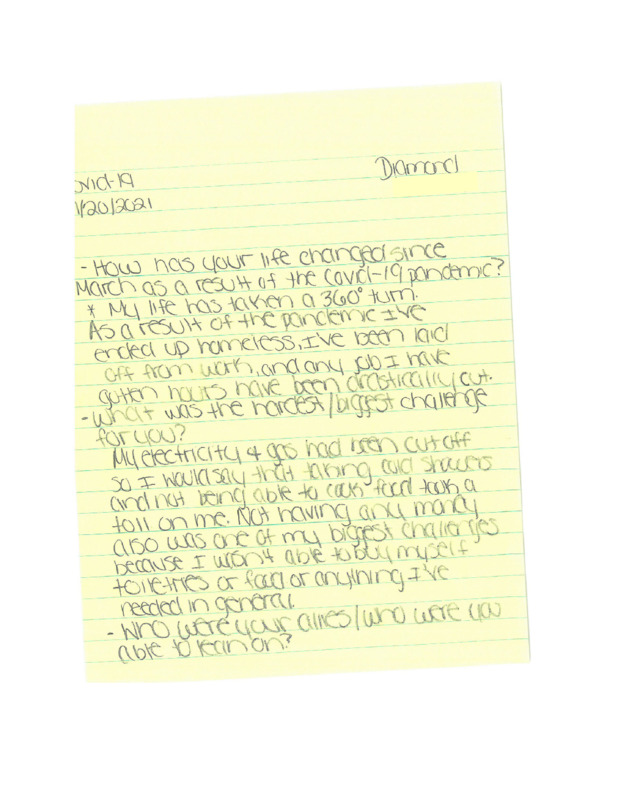 Diamond
ovid-19
1/20/2021
- How has your life changed since
March as a result of the covid-19 pandemic?
* My life has taken a 360° turn.
As a result of the pandemic I've
ended up homeless, I've been laid
off from work, and any job I have
gotten hours have been drastically cut.
- What was the hardest/biggest challenge
for you?
My electricity & gas had been cut off
so I would say that taking cold showers
and not being able to cook food took a
toll on me. Not having any money
also was one of my biggest challenges
because I wasn't able to buy myself
toiletries or food or anything I've
needed in general.
- Who were your allies/who were you
able to lean on?